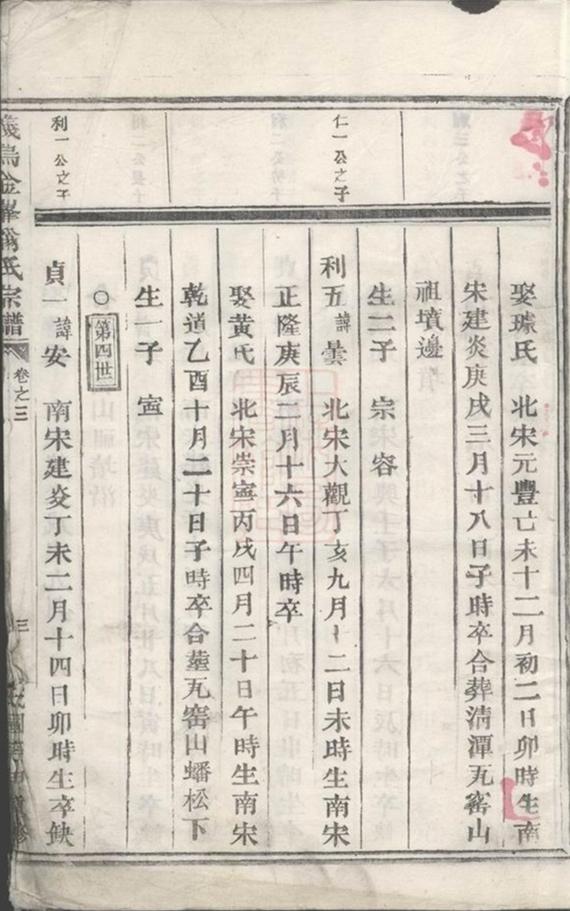 娶璩氏 北宋元豐亡未十二月初二日卯時生南
宋建炎庚戌三月十八日子時卒合葬清潭瓦窰山
祖墳邊
生二子 宗 容
仁一公之子
利五 諱曇 北宋大觀丁亥九月十二日未時生南宋
正隆庚辰三月十六日午時卒
娶黃氏 北宋崇寧丙戌四月二十日午時生南宋
乾道乙酉十月二十日子時卒合葬瓦窰山蟠松下
生一子 寍
○ 第四世
利一公之子
貞一 諱安 南宋建炎丁未二月十四日卯時生卒缺
義烏金峯 氏宗譜 卷之三
三